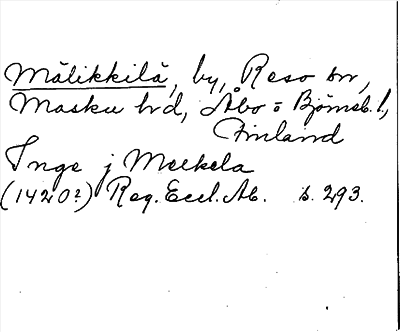 Mälikkilä, by, Reso sn,
Masku hd, Åbo o Björneb. l,
Finland
Inge j Melkela
(1420?) Reg. Eccl. Ab. s. 293.